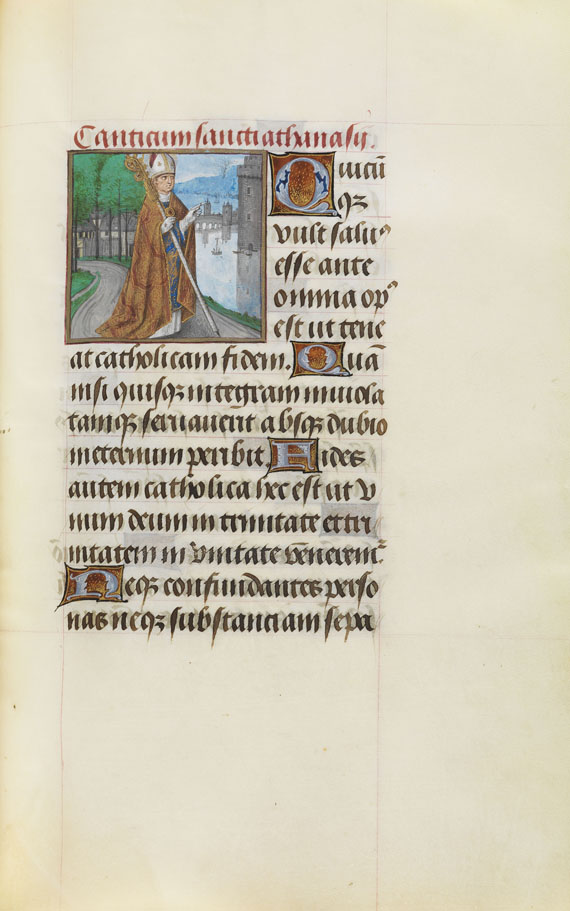 Canticum sancti athanasij.
Quicū
qꝫ
vult saluꝰ
esse ante
omnia opꝰ
est ut tene
at catholicam fidem. Quā
nisi quisqꝫ integram inuiola
tamqꝫ seruauerit absqꝫ dubio
ineternum peribit. Fides
autem catholica hec est ut v
num deum in trinitate et tri
nitatem in vnitate venerem᷒
Neqꝫ confundantes perso
nas neqꝫ substanciam sepa